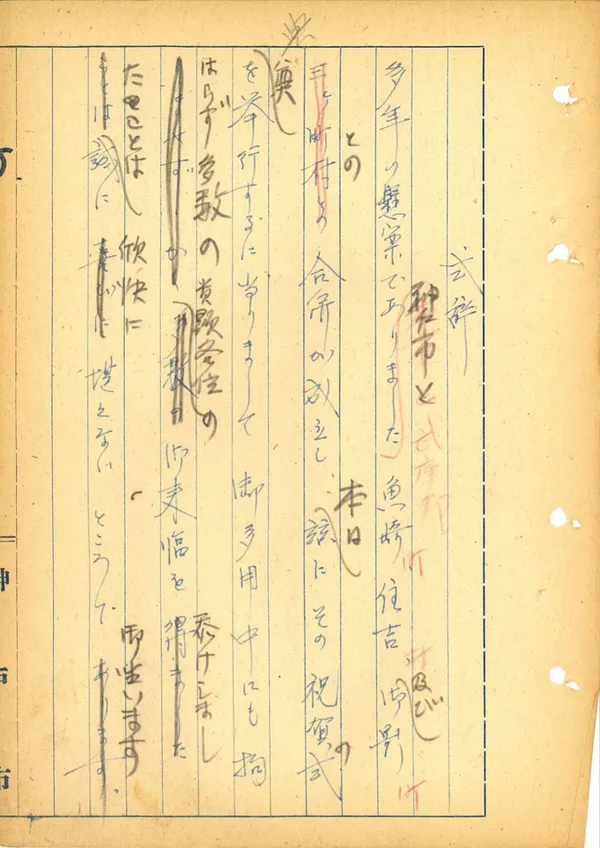 式辞
神戸市と
武庫郡
多年の懸案でありました魚崎町住吉村及び御影町
との
三ヶ町村の合併が成立し本日茲にその祝賀式の
を挙行するに当りまして御多用中にも拘
はらず多数の貴顕各位の
らずかく多数の御来臨を得ました
忝けしまし
たことは欣快に
ことは誠に喜びに堪えないところであります。
御坐います
神戸市